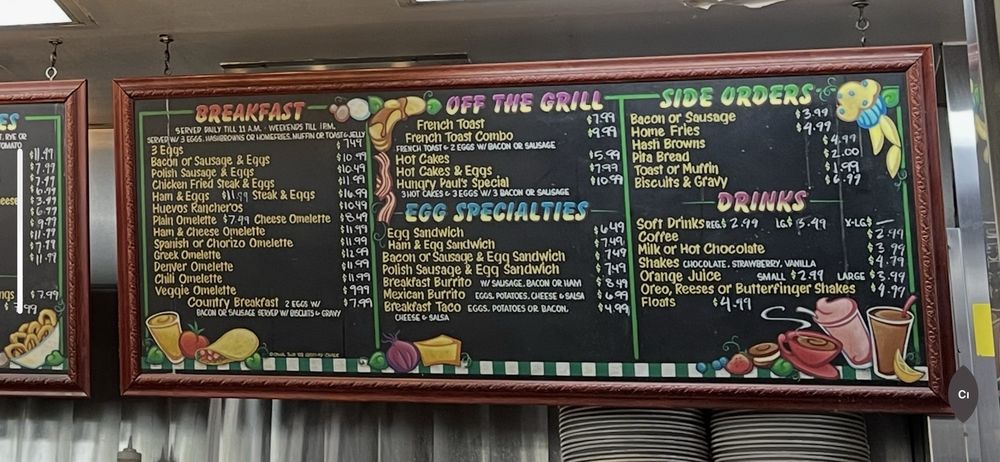 ES
$11.99
$7.99
BREAKFAST
SERVED DAILY TILL 11 A.M. - WEEKENDS TILL 1 P.M.
SERVED W/ 3 EGGS, HASHBROWNS OR HOMEFRIES, MUFFIN OR TOAST & JELLY
3 Eggs $7.49
Bacon or Sausage & Eggs $10.99
Polish Sausage & Eggs $10.99
Chicken Fried Steak & Eggs $11.99
Ham & Eggs $11.99 Steak & Eggs $16.99
Huevos Rancheros $10.49
Plain Omelette $7.99 Cheese Omelette $8.49
Ham & Cheese Omelette $11.99
Spanish or Chorizo Omelette $11.99
Greek Omelette $12.99
Denver Omelette $11.99
Chili Omelette $11.99
Veggie Omelette $9.99
Country Breakfast 2 EGGS W/ $7.99
BACON OR SAUSAGE SERVED W/ BISCUITS & GRAVY
OFF THE GRILL
French Toast $7.99
French Toast Combo $9.99
FRENCH TOAST & 2 EGGS W/ BACON OR SAUSAGE
Hot Cakes $5.99
Hot Cakes & Eggs $7.99
Hungry Paul's Special $10.99
3 HOT CAKES & 3 EGGS W/ 3 BACON OR SAUSAGE
EGG SPECIALTIES
Egg Sandwich $6.49
Ham & Egg Sandwich $7.49
Bacon or Sausage & Egg Sandwich $7.49
Polish Sausage & Egg Sandwich $7.49
Breakfast Burrito W/ SAUSAGE, BACON OR HAM $8.49
Mexican Burrito EGGS, POTATOES, CHEESE & SALSA $6.99
Breakfast Taco EGGS, POTATOES OR BACON, $4.99
CHEESE & SALSA
SIDE ORDERS
Bacon or Sausage $3.99
Home Fries $4.99
Hash Browns $4.99
Pita Bread $2.00
Toast or Muffin $1.99
Biscuits & Gravy $6.99
DRINKS
Soft Drinks REG. $2.99 LG. $3.49 X-LG. $
Coffee $2.99
Milk or Hot Chocolate $3.99
Shakes CHOCOLATE, STRAWBERRY, VANILLA $4.79
Orange Juice SMALL $2.99 LARGE $3.99
Oreo, Reeses or Butterfinger Shakes $4.99
Floats $4.99